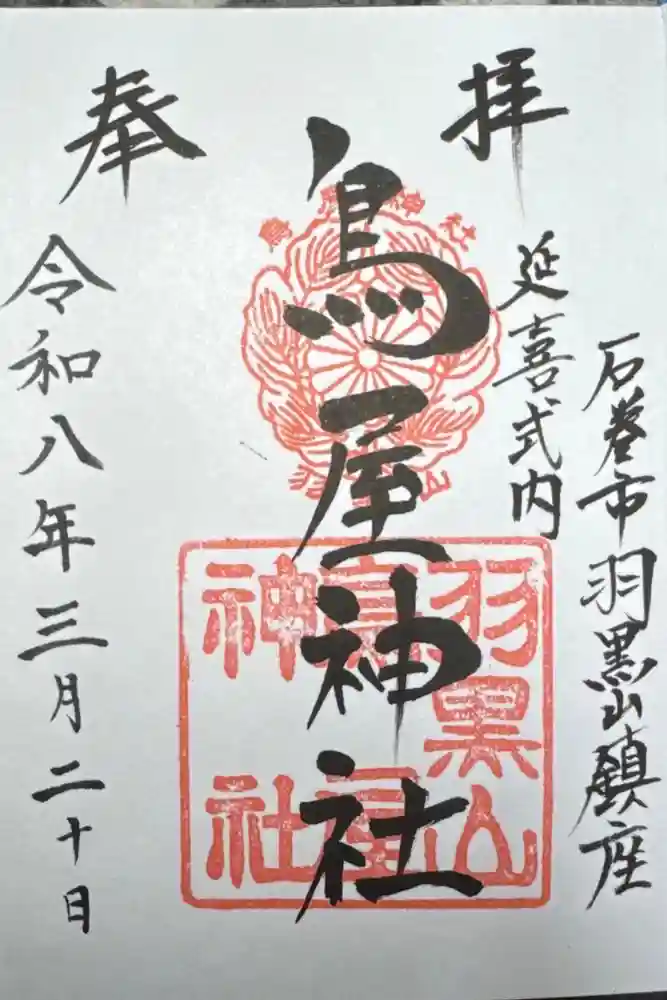 奉拝
石巻市羽黒山鎮座
延喜式内
鳥屋神社
令和八年三月二十日
羽黒山
鳥屋
神社